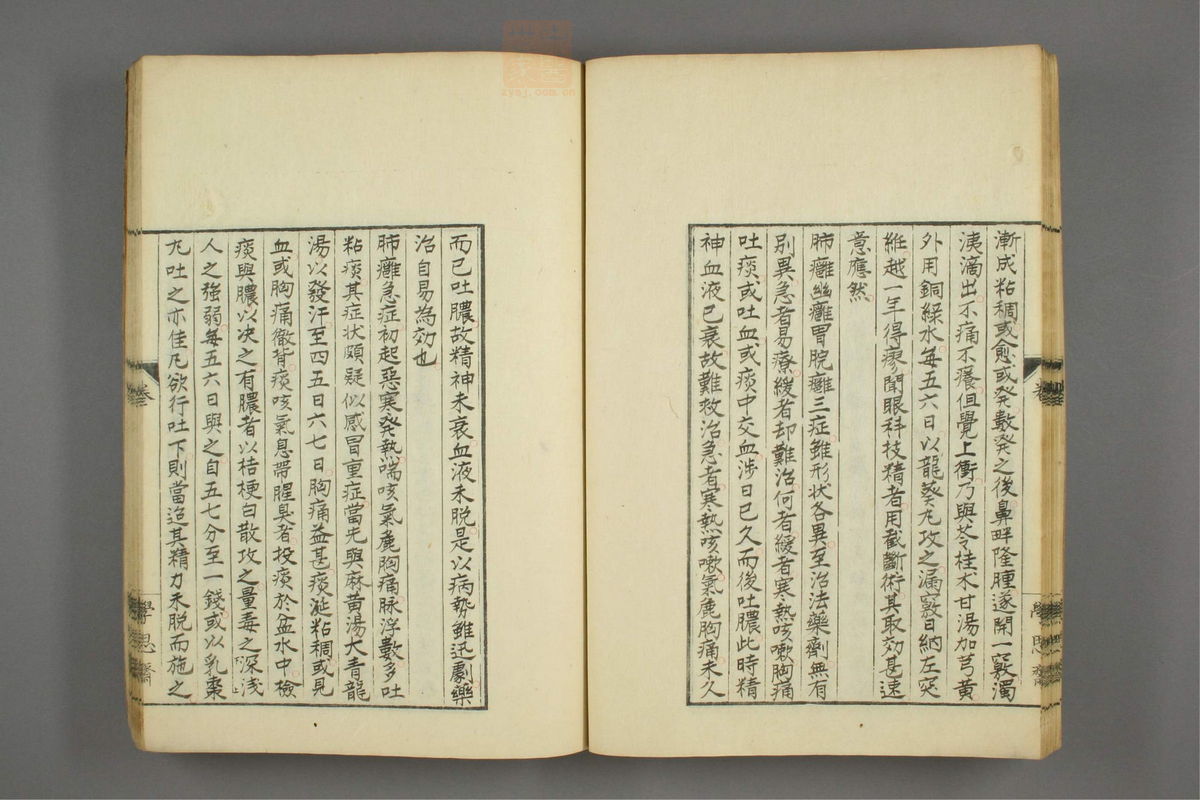 漸成粘稠或愈或發數發之後鼻畔隆腫遂開一竅濁
洟滴出不痛不癢但覺上衝乃與苓桂朮甘湯加芎黃
外用銅綠水每五六日以龍葵丸攻之漏竅日納左突
紝越一年得瘳聞眼科技精者用截斷術其取効甚速
意應然
肺癰幽癰胃脘癰三症雖形状各異至治法藥劑無有
別異急者易療緩者却難治何者緩者寒熱咳嗽胸痛
吐痰或吐血或痰中交血涉日已久而後吐膿此時精
神血液已衰故難救治急者寒熱咳嗽氣麁胸痛未久
而已吐膿故精神未衰血液未脫是以病勢雖迅劇藥
治自易為効也
肺癰急症初起惡寒發熱喘咳氣麁胸痛脉浮數多吐
粘痰其症状頗疑似感冒重症當先與麻黃湯大青龍
湯以發汗至四五日六七日胸痛益甚痰涎粘稠或見
血或胸痛徹背痰咳氣息帶腥臭者投痰於盆水中檢
痰與膿以决之有膿者以桔梗白散攻之量毒之深浅
人之強弱每五六日與之自五七分至一錢或以乳棗
丸吐之亦佳凡欲行吐下則當迨其精力未脫而施之
卷
學思齋
卷
學思齋
zysj.com.cn